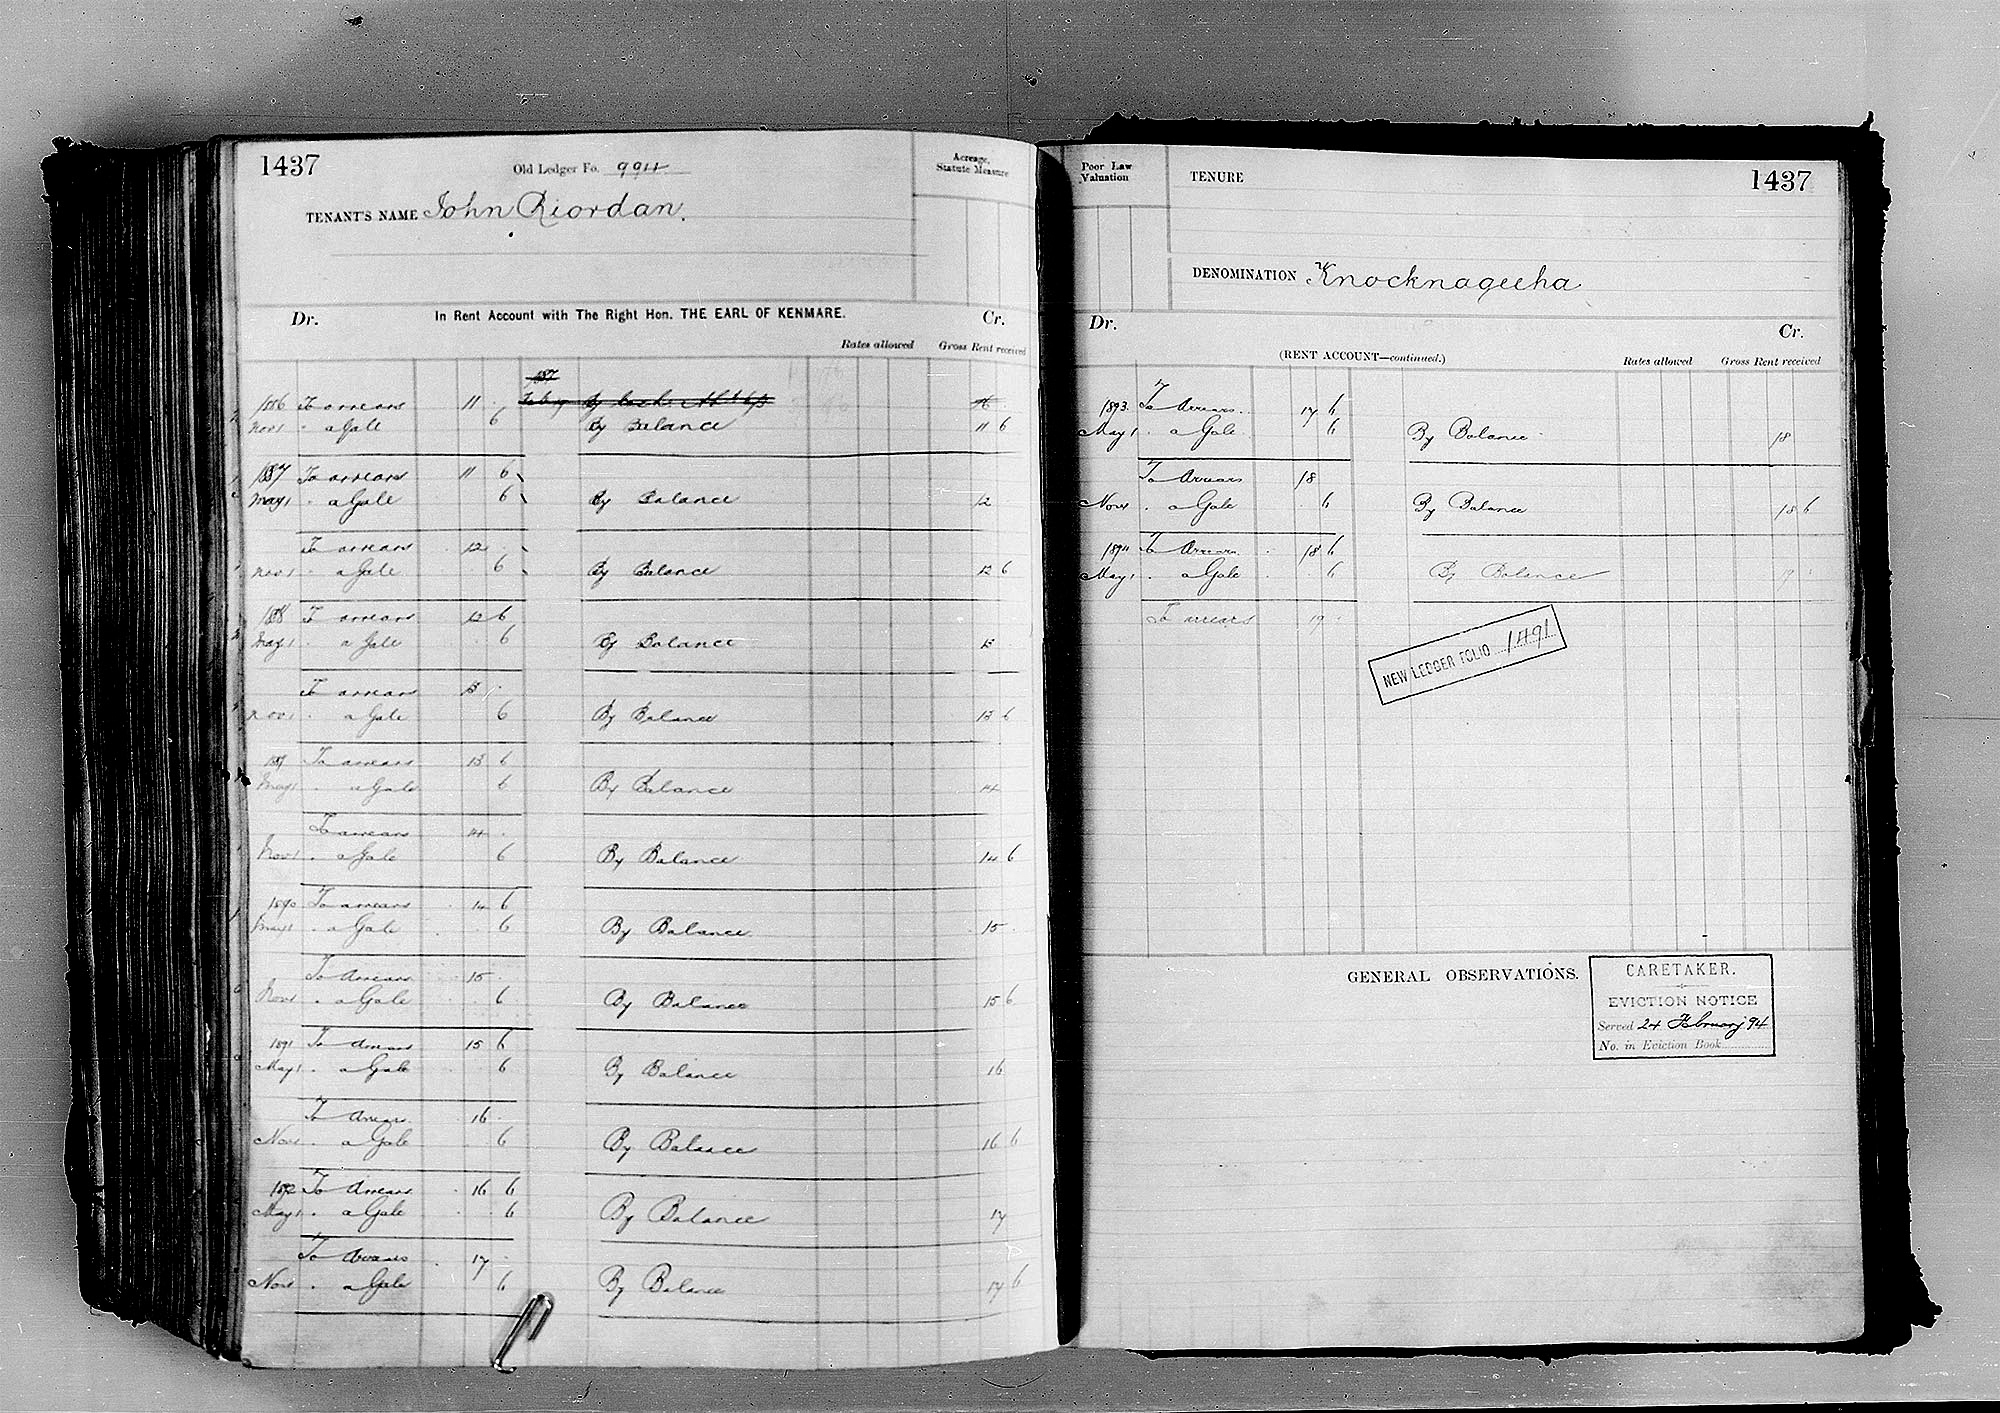 1437
Old Ledger Fo. 994
Acreage, Statute Measure
TENANT'S NAME John Riordan.
In Rent Account with The Right Hon. THE EARL OF KENMARE.
Dr. Cr.
Rates allowed Gross Rent received
1886 To arrears 11 .
Nov 1 " a Gale 6 By Balance 11 6
1887 To arrears 11 6
May 1 " a Gale 6 By Balance 12
To arrears 12 .
Nov 1 " a Gale 6 By Balance 12 6
1888 To arrears 12 6
May 1 " a Gale 6 By Balance 13
To arrears 13 .
Nov 1 " a Gale 6 By Balance 13 6
1889 To arrears 13 6
May 1 " a Gale 6 By Balance 14
To arrears 14 .
Nov 1 " a Gale 6 By Balance 14 6
1890 To arrears 14 6
May 1 " a Gale 6 By Balance 15
To Arrears 15 .
Nov 1 " a Gale 6 By Balance 15 6
1891 To Arrears 15 6
May 1 " a Gale 6 By Balance 16
To Arrears 16 .
Nov 1 " a Gale 6 By Balance 16 6
1892 To Arrears 16 6
May 1 " a Gale 6 By Balance 17
To Arrears 17 .
Nov 1 " a Gale 6 By Balance 17 6
Poor Law Valuation
TENURE
1437
DENOMINATION Knocknageeha
Dr. Cr.
(RENT ACCOUNT—continued.)
Rates allowed Gross Rent received
1893. To Arrears 17 6
May 1 " a Gale 6 By Balance 18
To Arrears 18
Nov 1 " a Gale 6 By Balance 18 6
1894 To Arrears 18 6
May 1 " a Gale 6 By Balance 19
To arrears 19
NEW LEDGER FOLIO 1491
GENERAL OBSERVATIONS.
CARETAKER.
EVICTION NOTICE
Served 24 February 94
No. in Eviction Book